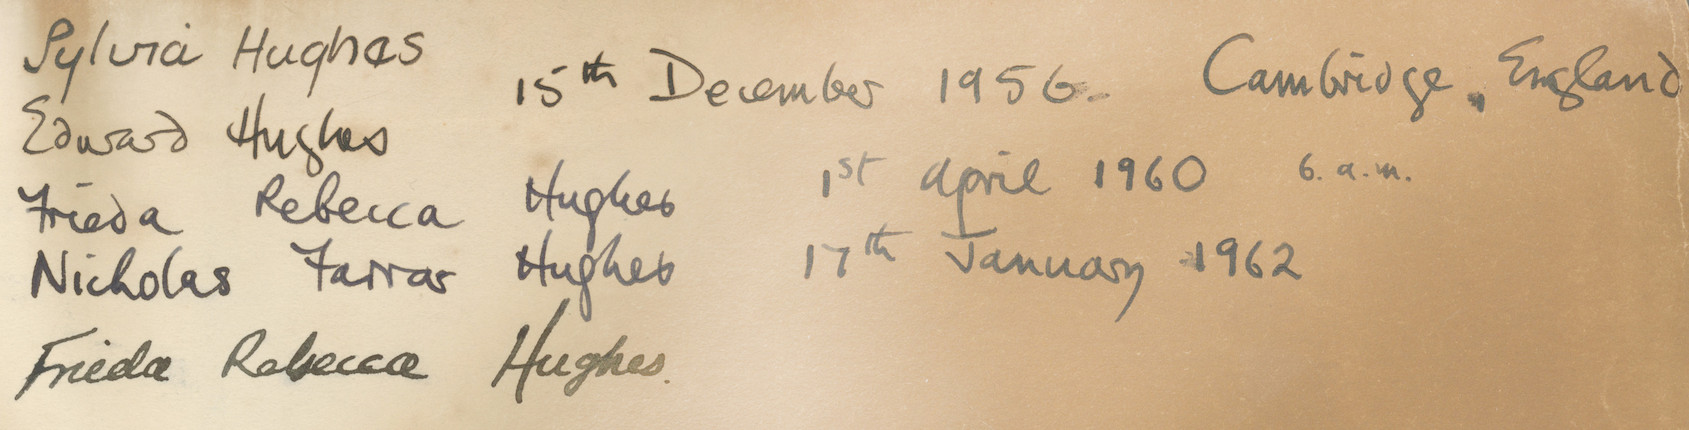 Sylvia Hughes
15th December 1956. Cambridge, England
Edward Hughes
Frieda Rebecca Hughes 1st April 1960 6. a.m.
Nicholas Farrar Hughes 17th January 1962
Frieda Rebecca Hughes.